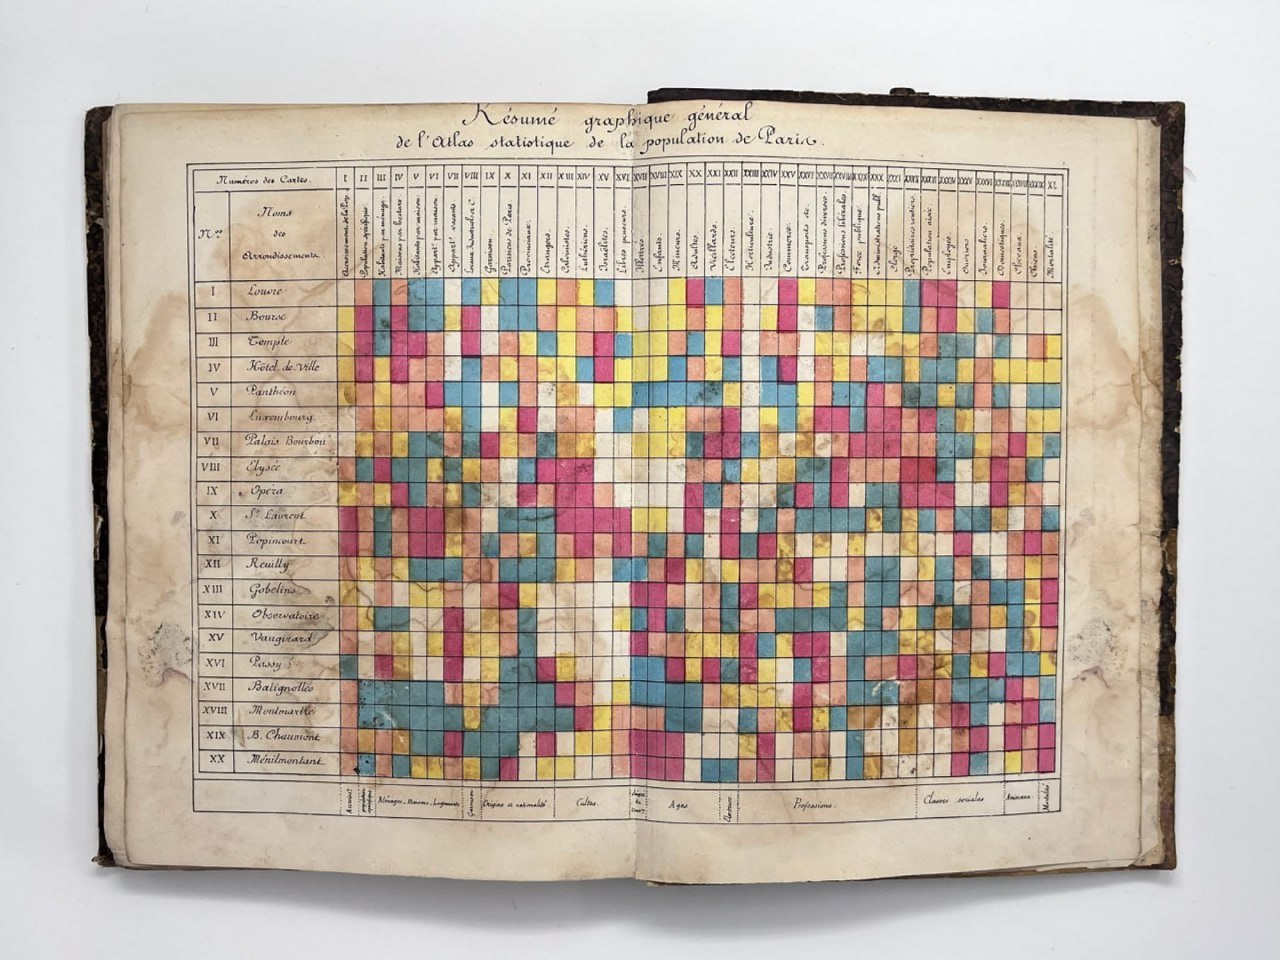 Résumé graphique général
de l'Atlas statistique de la population de Paris.
Numéros des Cartes. I II III IV V VI VII VIII IX X XI XII XIII XIV XV XVI XVII XVIII XIX XX XXI XXII XXIII XXIV XXV XXVI XXVII XXVIII XXIX XXX XXXI XXXII XXXIII XXXIV XXXV XXXVI XXXVII XXXVIII XXXIX XL
Nos
Noms
des
Arrondissements
Population spécifique
Habitants par ménage
Maisons par hectare
Habitants par maison
Appart. par maison
Appart. vacants
Garnison
Parisiens de Paris
Provinciaux
Etrangers
Calvinistes
Luthériens
Israélites
Libres penseurs
Illettrés
Enfants
Mineurs
Adultes
Vieillards
Electeurs
Horticulture
Industrie
Commerce
Transports
Professions diverses
Professions libérales
Force publique
Administrations publ.
Clergé
Propriétaires rentiers
Employés
Ouvriers
Journaliers
Domestiques
Chevaux
Chiens
Mortalité
I Louvre
II Bourse
III Temple
IV Hôtel de Ville
V Panthéon
VI Luxembourg
VII Palais Bourbon
VIII Elysée
IX Opéra
X St Laurent
XI Popincourt
XII Reuilly
XIII Gobelins
XIV Observatoire
XV Vaugirard
XVI Passy
XVII Batignolles
XVIII Montmartre
XIX B. Chaumont
XX Ménilmontant
Ménages, Maisons, logements
Garnison
Origine et nationalité
Cultes.
Ages
Electeurs
Professions.
Classes sociales
Animaux
Mortalité